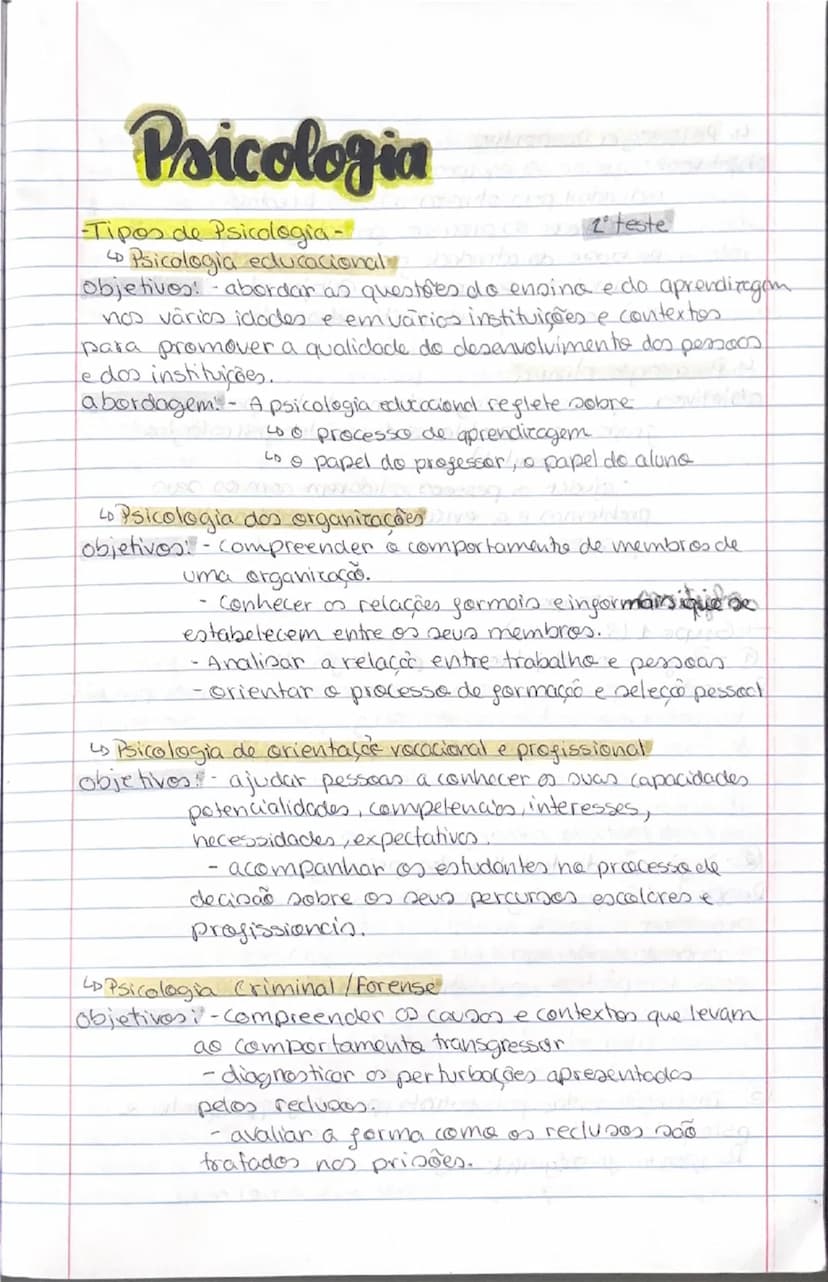 Psicologia
-Tipos de Psicologia- 2º teste
↳ Psicologia educacional
objetivos: - abordar as questões do ensino e da aprendizagem
nas várias idades e em várias instituições e contextos
para promover a qualidade do desenvolvimento das pessoas
e das instituições.
abordagem: - A psicologia educacional reflete sobre
↳ o processo de aprendizagem
↳ o papel do professor, o papel do aluno
↳ Psicologia das organizações
objetivos: - compreender o comportamento de membros de
uma organização.
- Conhecer as relações formais e informais que se
estabelecem entre os seus membros.
- Analisar a relação entre trabalho e pessoas
- orientar o processo de formação e seleção pessoal
↳ Psicologia de orientação vocacional e profissional
objetivos: - ajudar pessoas a conhecer as suas capacidades
potencialidades, competencias, interesses,
necessidades, expectativas.
- acompanhar os estudantes no processo de
decisão sobre os seus percursos escolares e
profissionais.
↳ Psicologia Criminal / Forense
Objetivos: - compreender as causas e contextos que levam
ao comportamento transgressor
- diagnosticar as perturbações apresentadas
pelos reclusos.
- avaliar a forma como os reclusos são
tratados nas prisões.